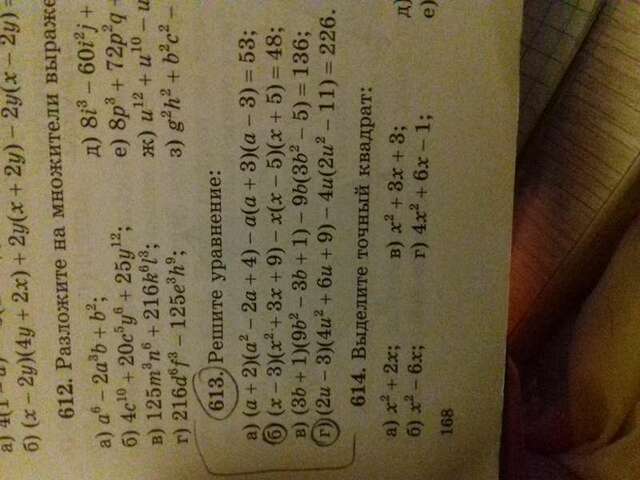 б) (x − 2y)(4y + 2x) + 2y(x + 2y) − 2y(x − 2y) =
612. Разложите на множители
а) a⁶ − 2a³b + b²;
б) 4c¹⁰ + 20c⁵y⁶ + 25y¹²;
в) 125m³n⁶ + 216k⁶l³;
г) 216d⁶f³ − 125e³h⁹;
д) 8i³ − 60i²j +
е) 8p³ + 72p²q +
ж) u¹² + u¹⁰ −
з) g²h² + b²c² −
613. Решите уравнение:
а) (a + 2)(a² − 2a + 4) − a(a + 3)(a − 3) = 53;
б) (x − 3)(x² + 3x + 9) − x(x − 5)(x + 5) = 48;
в) (3b + 1)(9b² − 3b + 1) − 9b(3b² − 5) = 136;
г) (2u − 3)(4u² + 6u + 9) − 4u(2u² − 11) = 226.
614. Выделите точный квадрат:
а) x² + 2x;
б) x² − 6x;
в) x² + 3x + 3;
г) 4x² + 6x − 1;
д)
е)
168